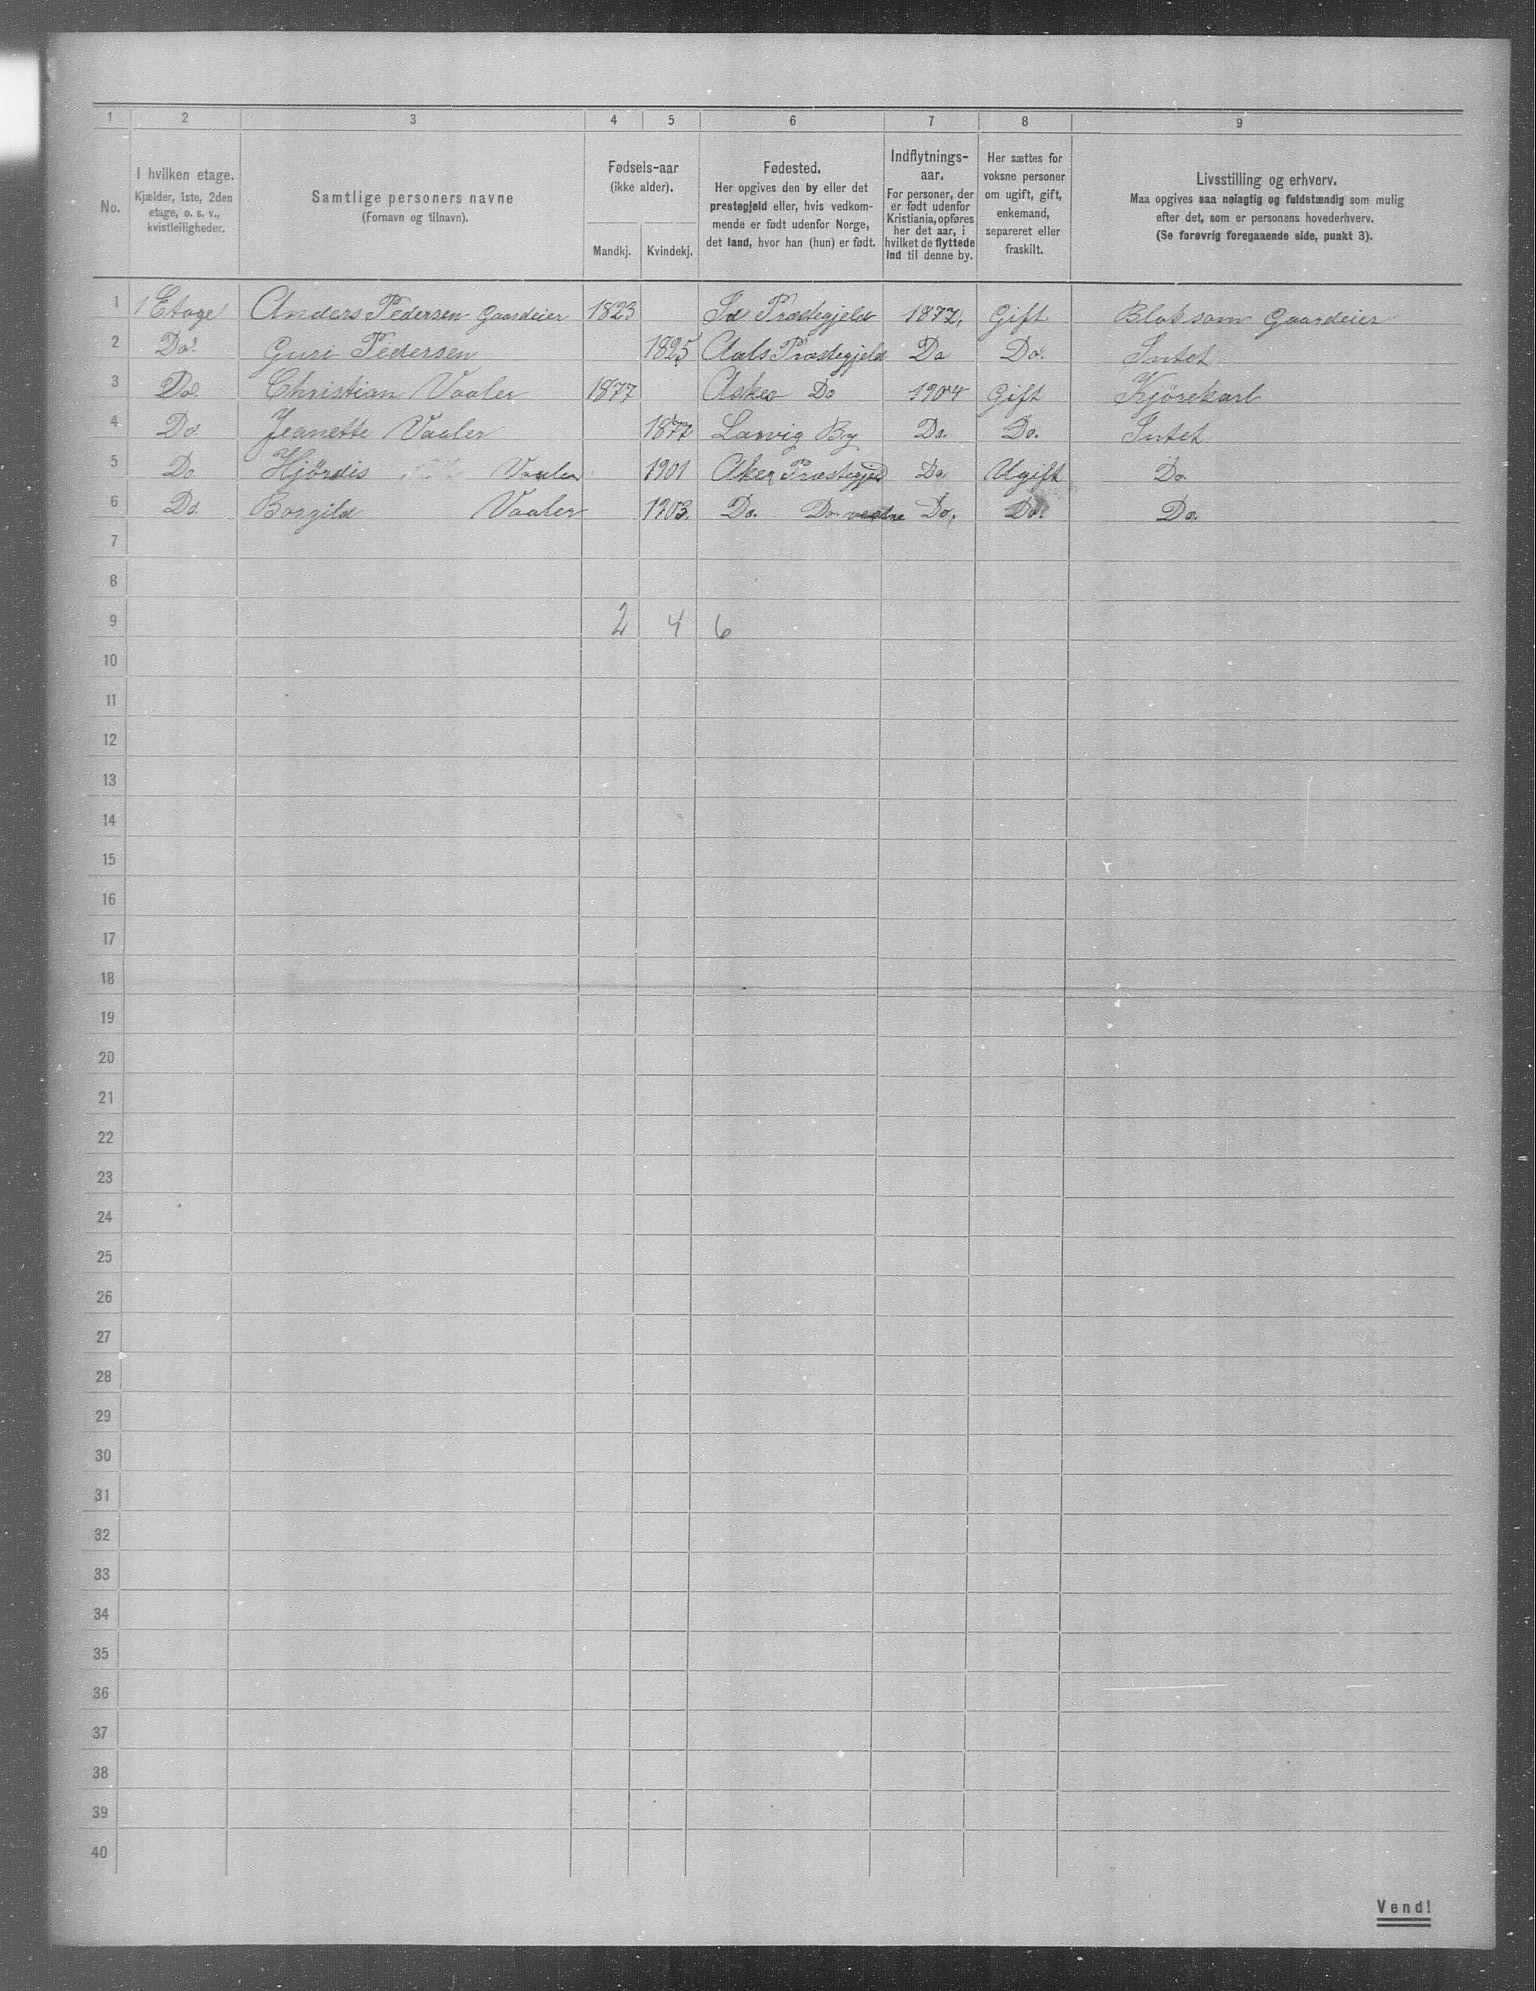 1 2 3 4 5 6 7 8 9
No.
I hvilken etage.
Kjælder, 1ste, 2den
etage, o. s. v.,
kvistleiligheder.
Samtlige personers navne
(Fornavn og tilnavn).
Fødsels-aar
(ikke alder).
Mandkj. Kvindekj.
Fødested.
Her opgives den by eller det
prestegjeld eller, hvis vedkom-
mende er født udenfor Norge,
det land, hvor han (hun) er født.
Indflytnings-
aar.
For personer, der
er født udenfor
Kristiania, opføres
her det aar, i
hvilket de flyttede
ind til denne by.
Her sættes for
voksne personer
om ugift, gift,
enkemand,
separeret eller
fraskilt.
Livsstilling og erhverv.
Maa opgives saa nøiagtig og fuldstændig som mulig
efter det, som er personens hovederhverv.
(Se forøvrig foregaaende side, punkt 3).
1 1 Etage Anders Pedersen Gaardeier 1823 Præstegjeld 1877. Gift Blot som Gaardeier
2 Do. Guri Pedersen 1825 Aals Præstegjeld Do Do. Intet
3 Do. Christian Vaaler 1877 Asker Do 1904 Gift Kjørekarl
4 Do. Jeanette Vaaler 1877 Larvig By Do. Do. Intet
5 Do Hjørdis Vaaler 1901 Aker Præstegjeld Do. Ugift Do.
6 Do. Borgild Vaaler 1903. Do. Do. Do. Do. Do.
7
8
9 2 4 6
10
11
12
13
14
15
16
17
18
19
20
21
22
23
24
25
26
27
28
29
30
31
32
33
34
35
36
37
38
39
40
Vend!